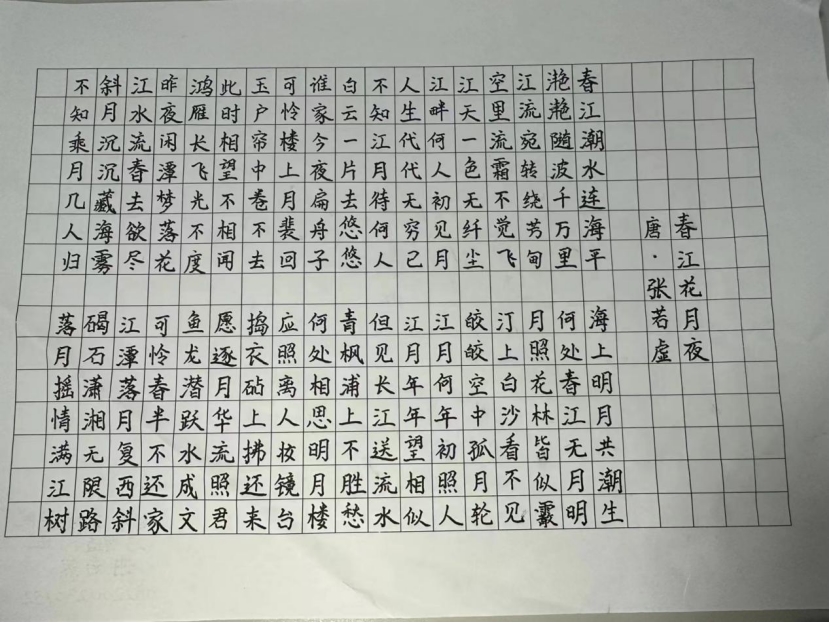 春江花月夜
唐·张若虚
春江潮水连海平 海上明月共潮生
滟滟随波千万里 何处春江无月明
江流宛转绕芳甸 月照花林皆似霰
空里流霜不觉飞 汀上白沙看不见
江天一色无纤尘 皎皎空中孤月轮
江畔何人初见月 江月何年初照人
人生代代无穷已 江月年年望相似
不知江月待何人 但见长江送流水
白云一片去悠悠 青枫浦上不胜愁
谁家今夜扁舟子 何处相思明月楼
可怜楼上月裴回 应照离人妆镜台
玉户帘中卷不去 捣衣砧上拂还来
此时相望不相闻 愿逐月华流照君
鸿雁长飞光不度 鱼龙潜跃水成文
昨夜闲潭梦落花 可怜春半不还家
江水流春去欲尽 江潭落月复西斜
斜月沉沉藏海雾 碣石潇湘无限路
不知乘月几人归 落月摇情满江树